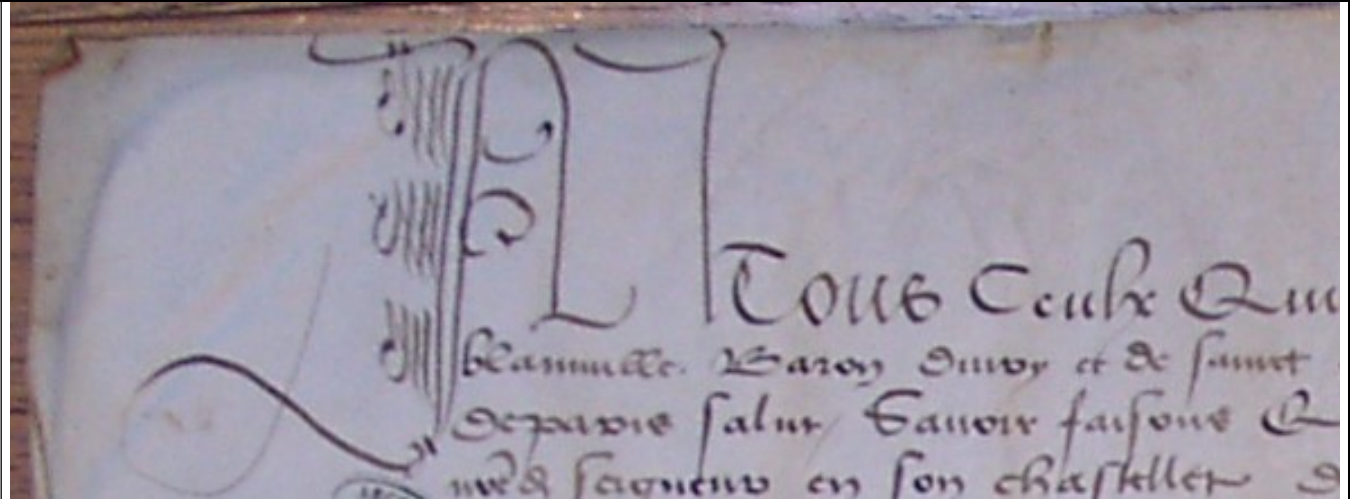 A Tous Ceulx Qui
blainville. Baron divry et de sainct
deparis salut Savoir faisons Q
seigneur en son chastellet d